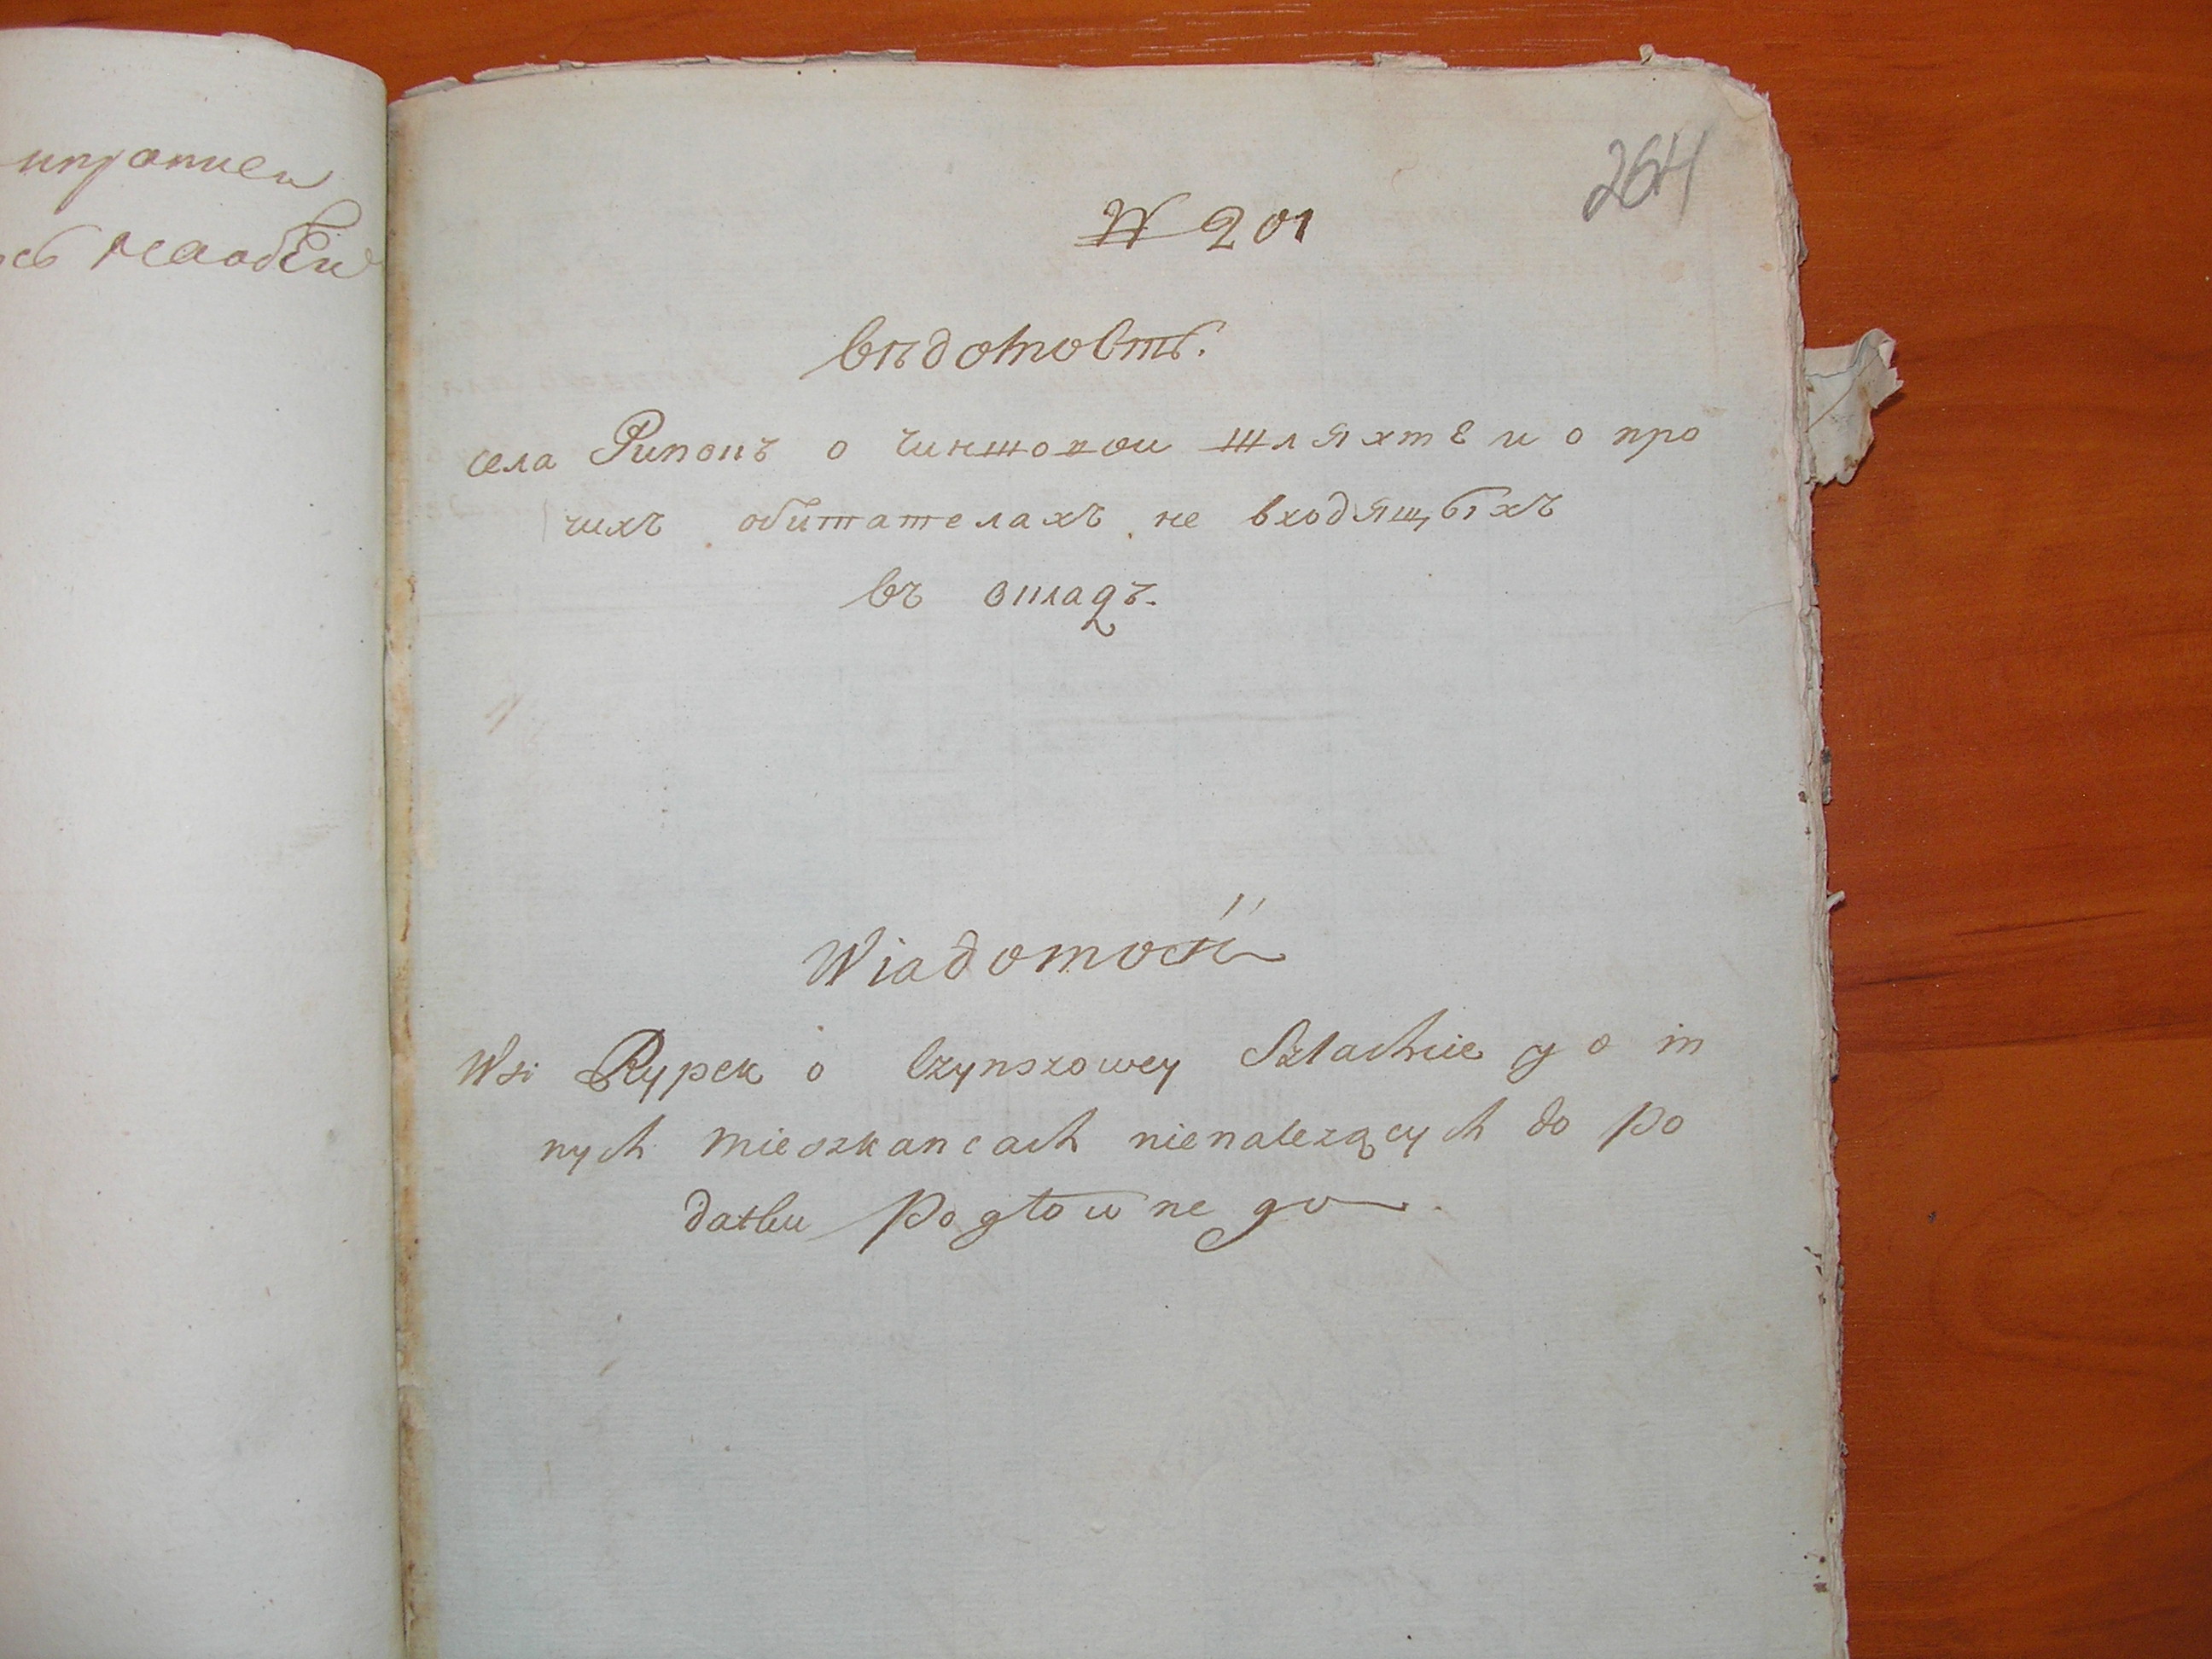 264
№ 201
вѣдомость.
села Рипокъ о чиншовои шляхте и о про
чихъ обитателахъ не входящыхъ
въ окладъ.
Wiadomość
Wsi Rypek o Czynszowey Szlachcie y o in
nych Mieszkancach nienależących do Po
datku Pogłownego